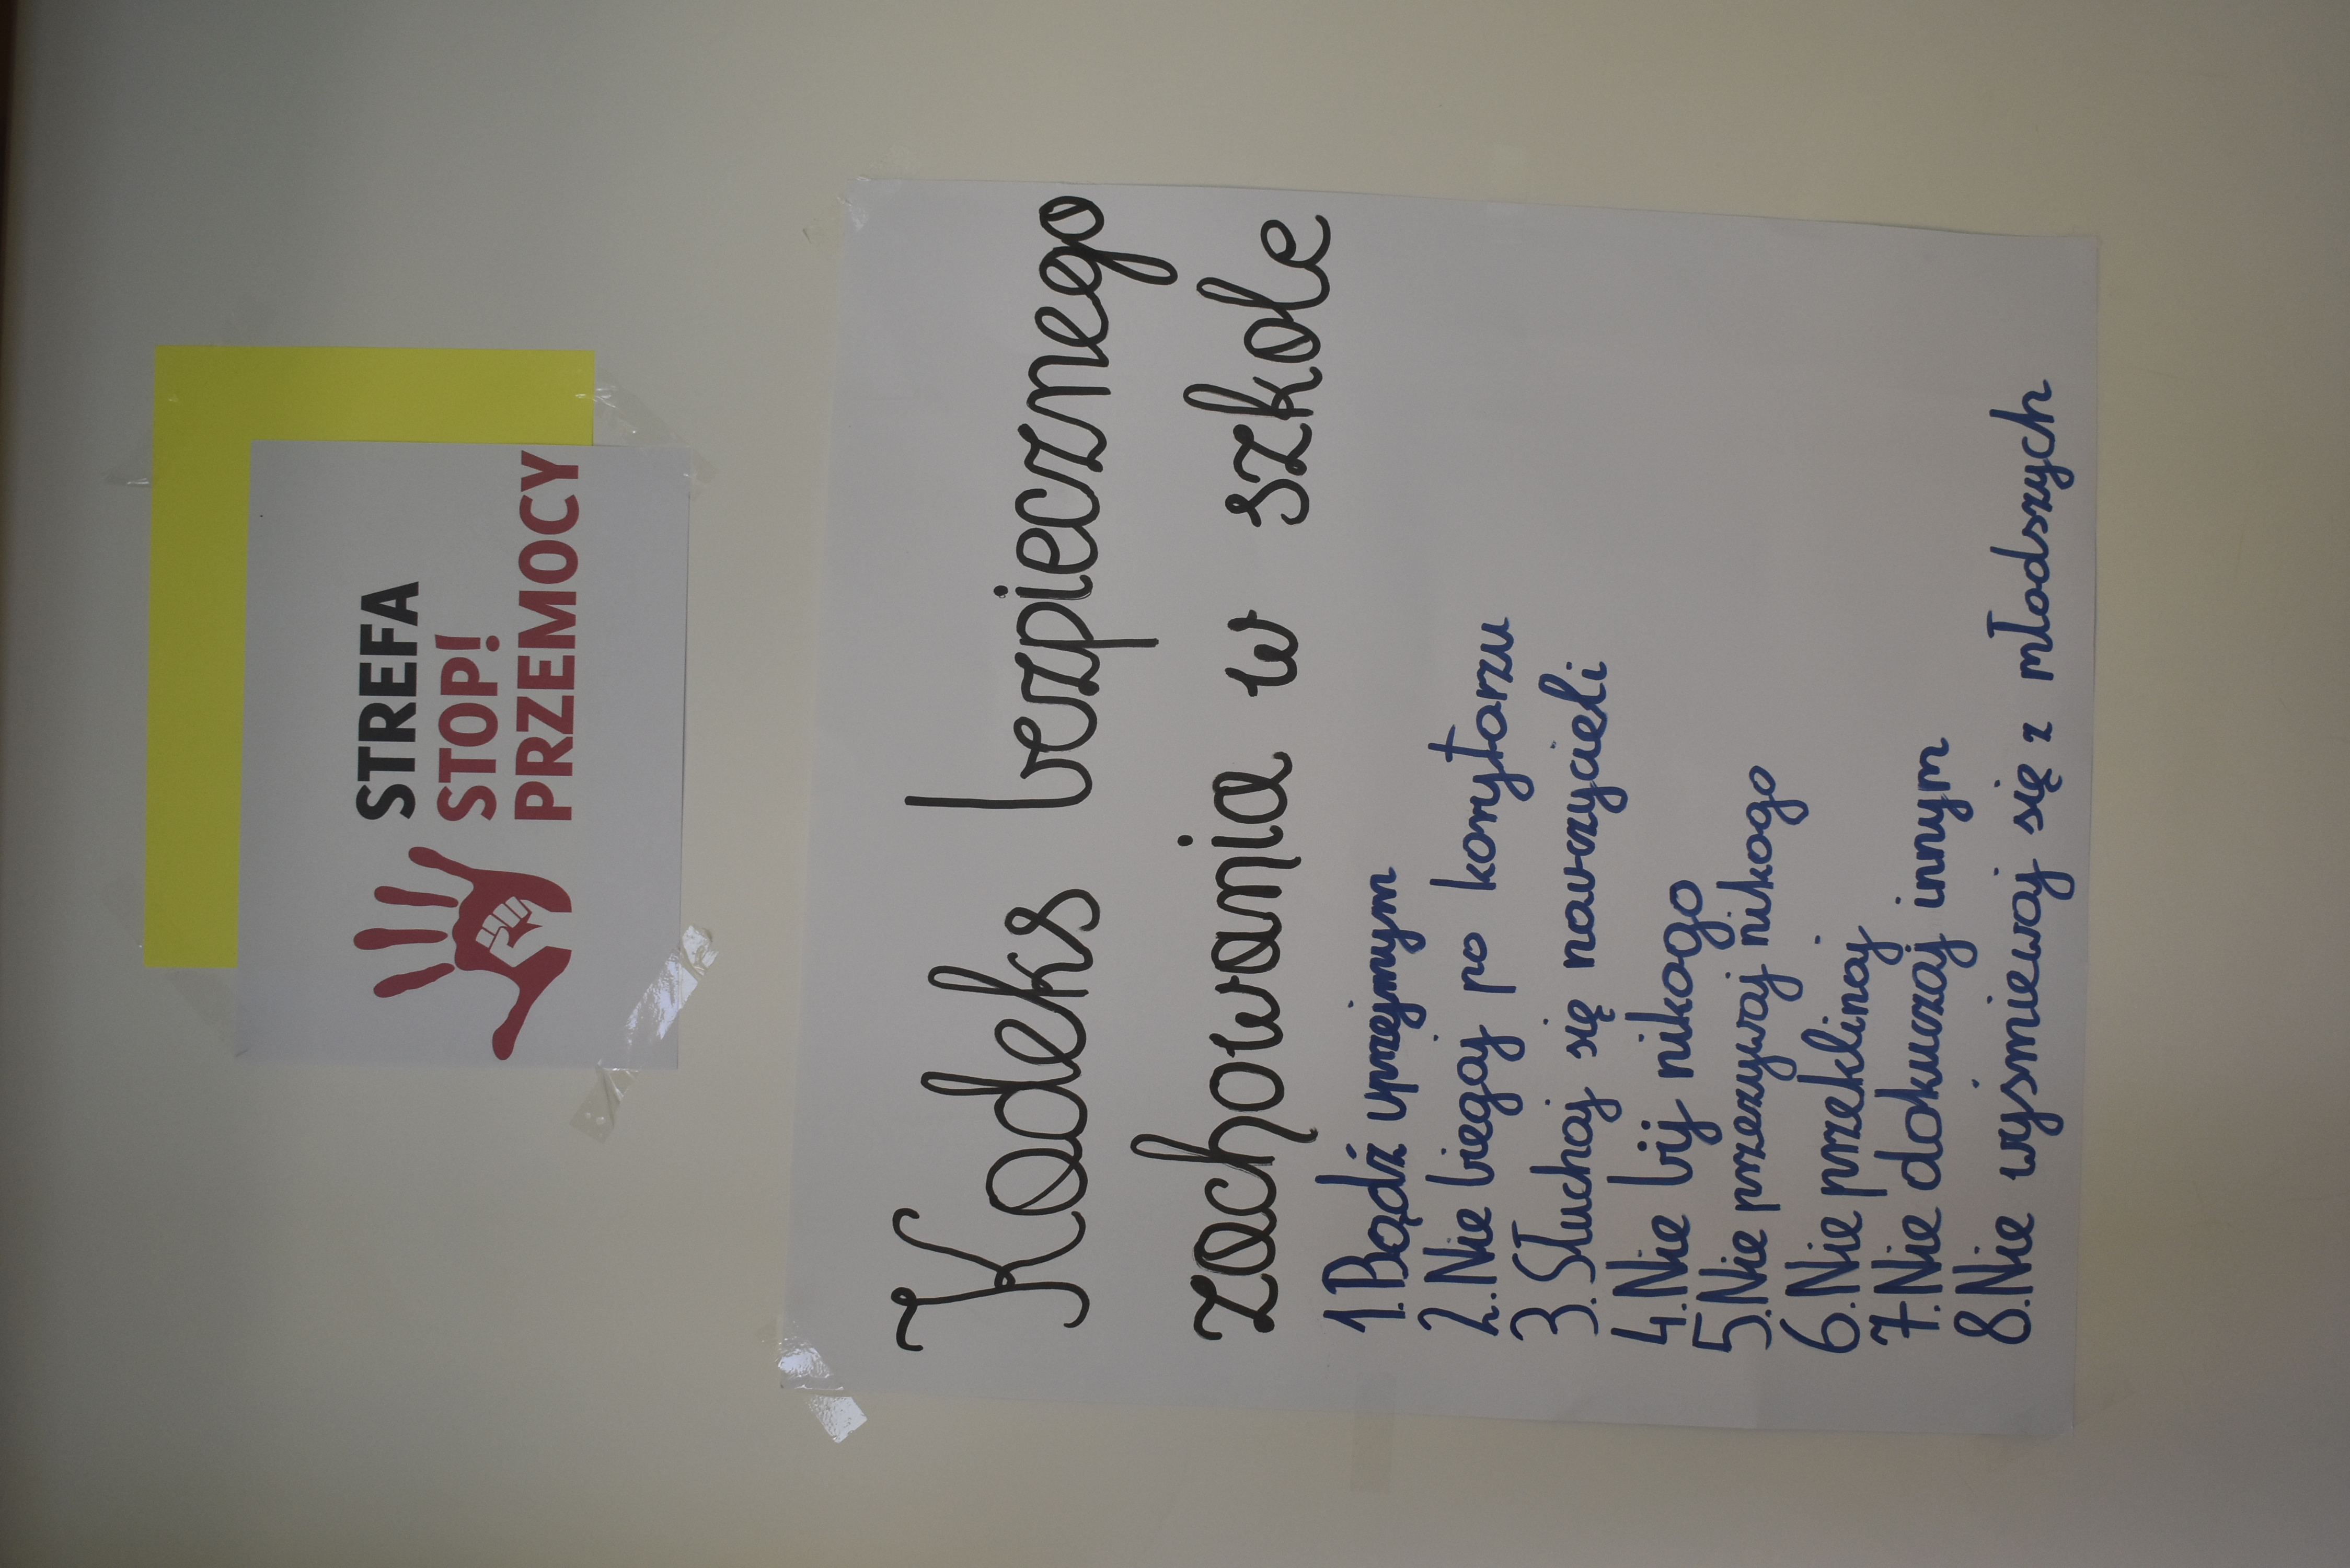 STREFA
STOP!
PRZEMOCY
Kodeks bezpiecznego
zachowania w szkole
1. Bądź uprzejmym
2. Nie biegaj po korytarzu
3. Słuchaj się nauczycieli
4. Nie bij nikogo
5. Nie przezywaj nikogo
6. Nie przeklinaj
7. Nie dokuczaj innym
8. Nie wyśmiewaj się z młodszych